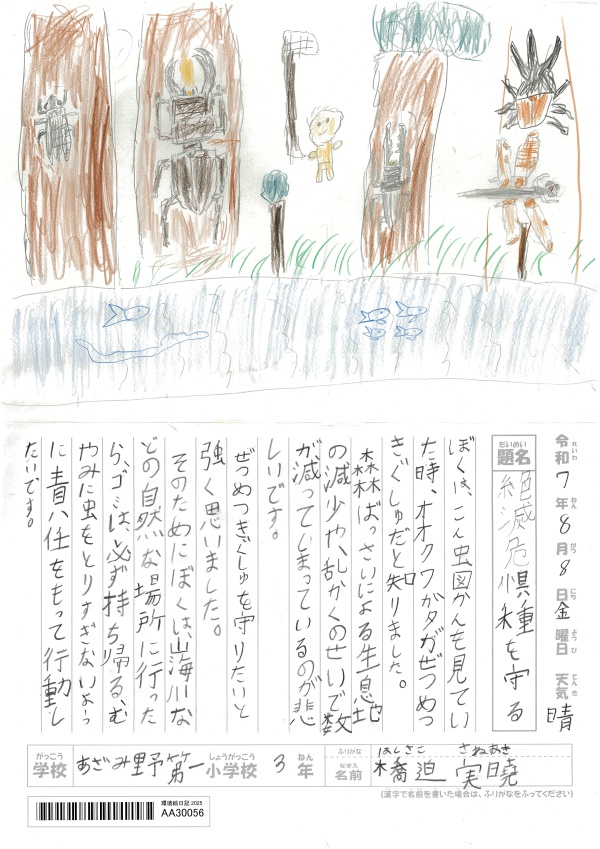 令和7年8月8日金曜日 天気 晴
れいわ ねん がつ にち ようび てんき
だいめい
題名 絶滅危惧種を守る
ぼくは、こん虫図かんを見てい
た時、オオクワガタがぜつめつ
きぐしゅだと知りました。
森林ばっさいによる生息地
の減少や、乱かくのせいで数
が減ってしまっているのが悲
しいです。
ぜつめつきぐしゅを守りたいと
強く思いました。
そのためにぼくは、山海川な
どの自然な場所に行った
ら、ゴミは必ず持ち帰る、む
やみに虫をとりすぎないよう
に責任をもって行動し
たいです。
がっこう しょうがっこう ねん
学校 あざみ野第一小学校 3年
ふりがな はしさこ さねあき
なまえ
名前 橋迫 実暁
(漢字で名前を書いた場合は、ふりがなをふってください)
環境絵日記 2025
AA30056